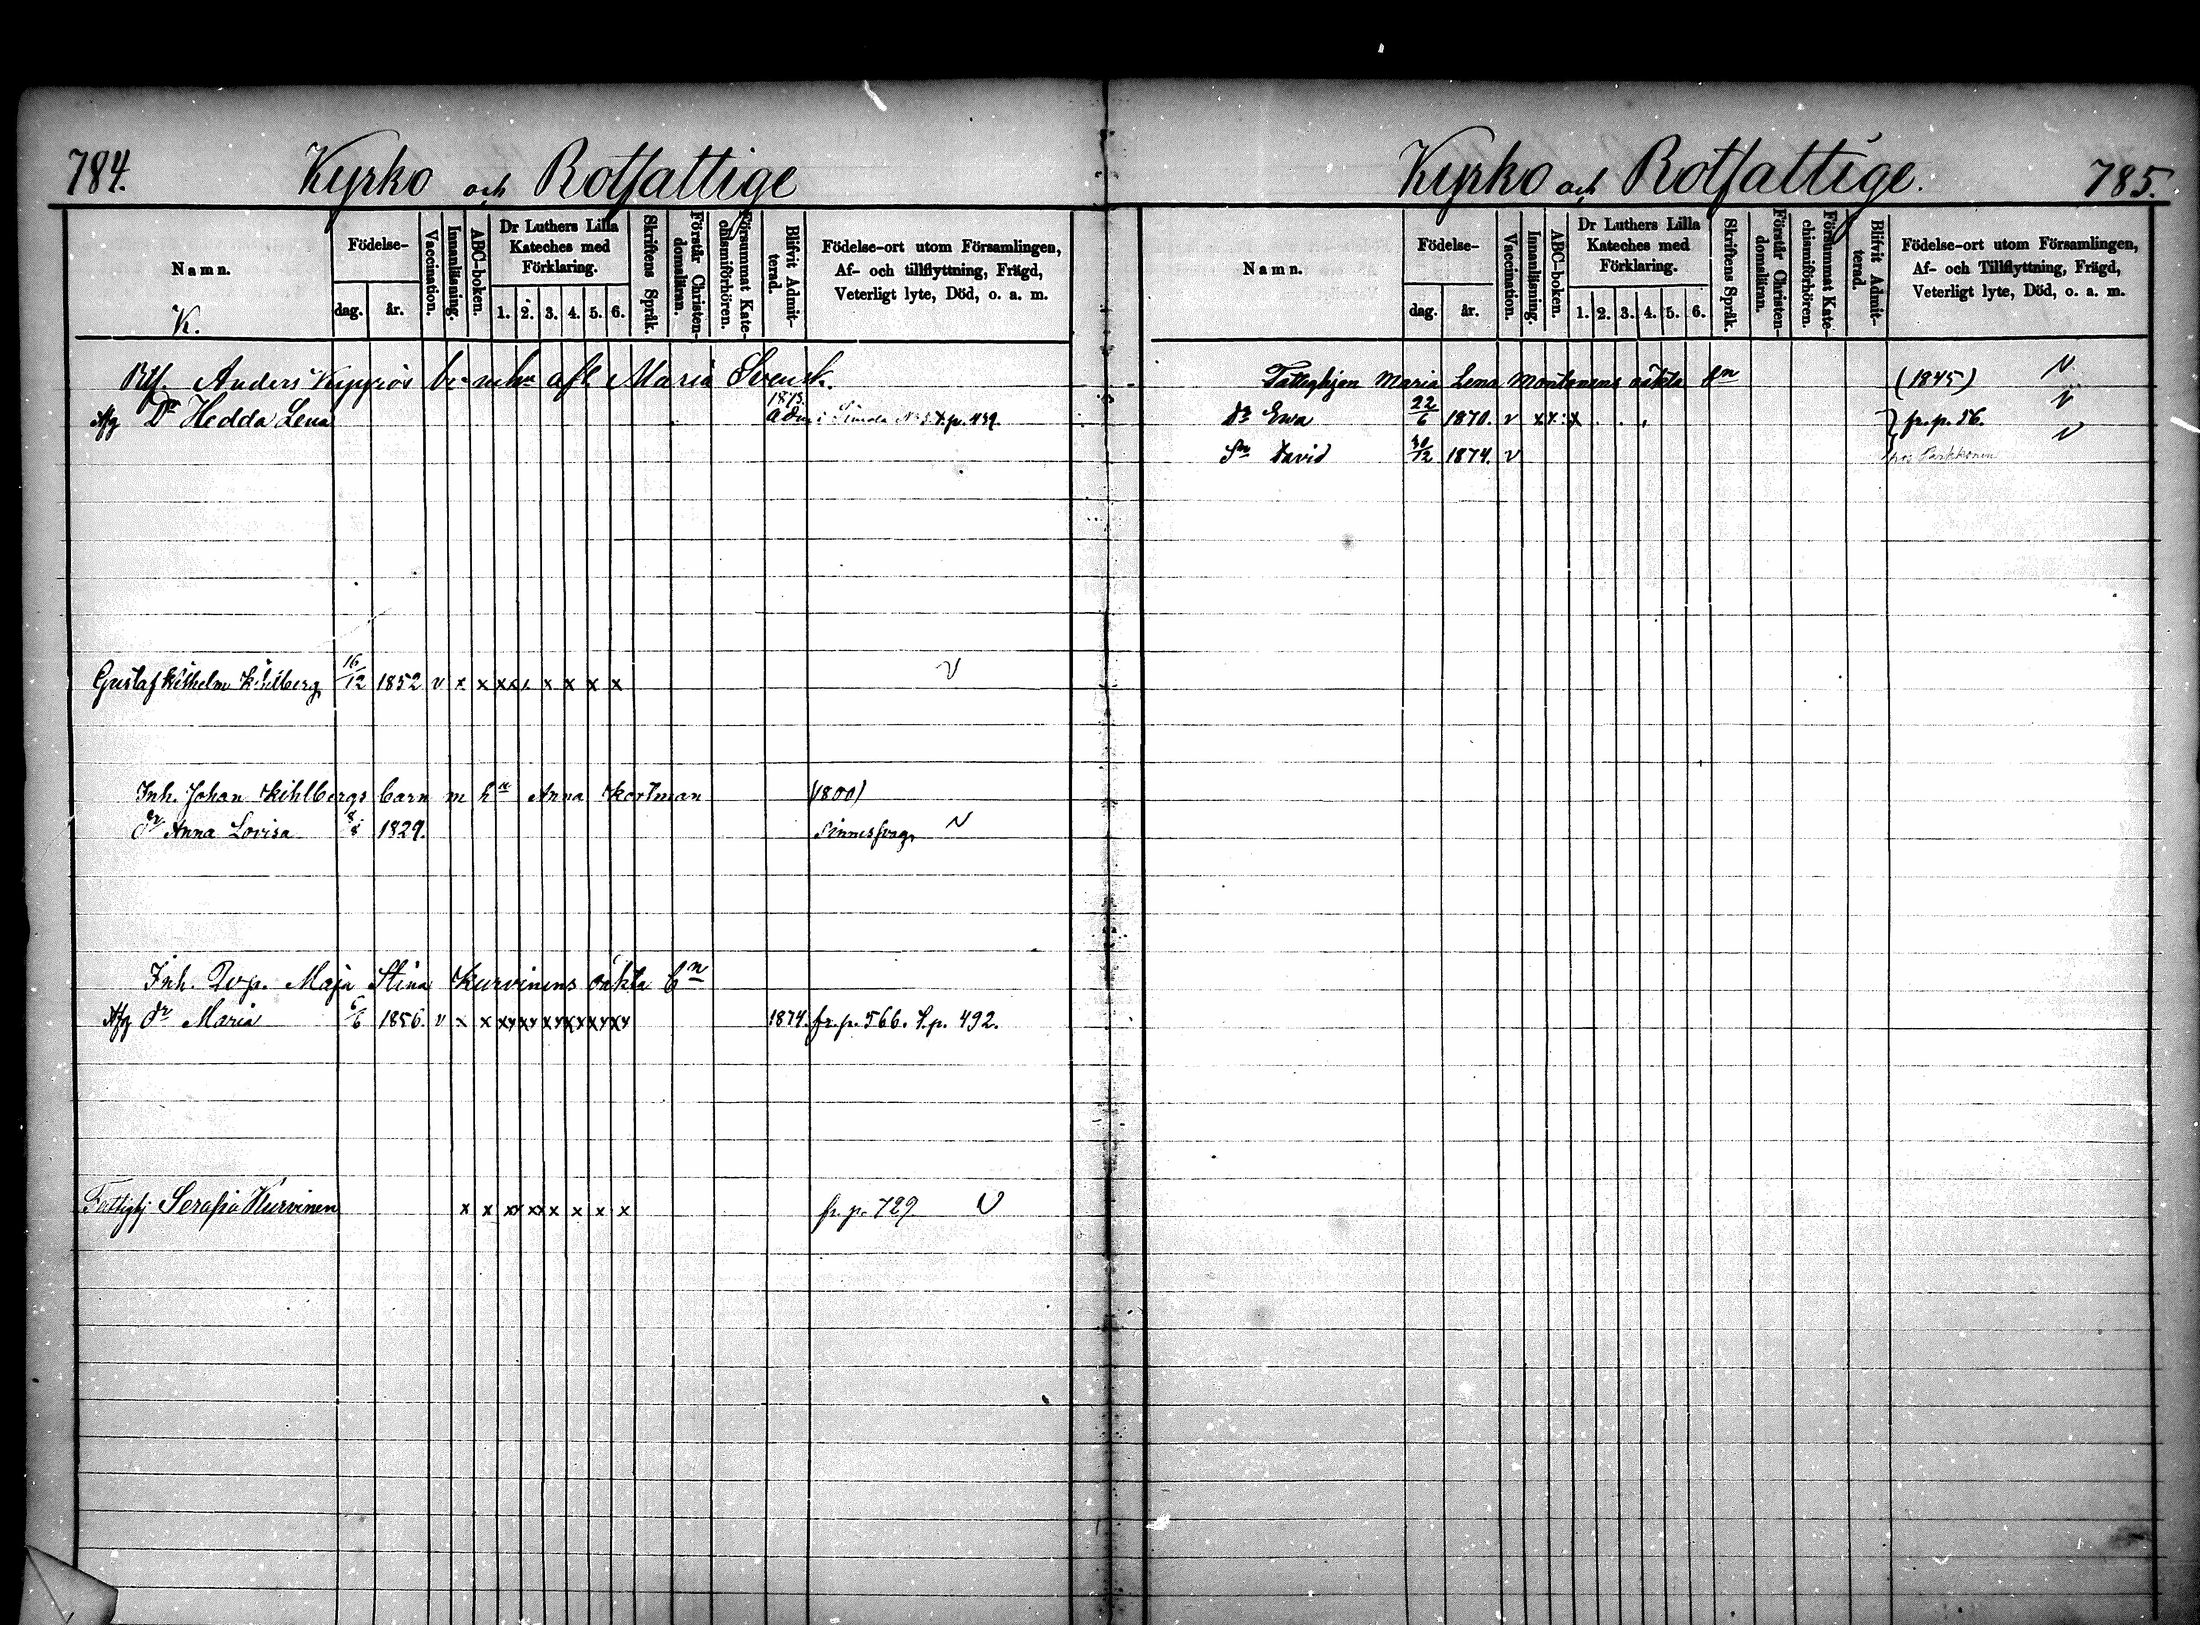 784.
Kyrko och Rotfattige
Namn.
K.
Födelse-
dag.
år.
Vaccination.
Innanläsning.
ABC-boken.
Dr Luthers Lilla Kateches med Förklaring.
1. 2. 3. 4. 5. 6.
Skriftens Språk.
Förstår Christendomsläran.
Försummat Katechismiförhören.
Blifvit Admitterad.
Födelse-ort utom Församlingen,
Af- och tillflyttning, Frägd,
Veterligt lyte, Död, o. a. m.
Anders Kyppiös afl. Maria Svensk.
1873.
Afg Dr Hedda Lena p. 439.
Gustaf Vilhelm Kihlberg 16/12 1852 v x x xx x x x x v
Inh. Johan Kihlbergs barn m hn Anna Kortman (800)
dr Anna Lovisa 1829. Sinnessvag v
Inh. Maja Stina Kurvinens oäkta bn
Afg dr Maria 6/6 1856. v x x xx xx xx xx xx xx 1874. fr. p. 566. S. p. 492.
Fattighj Serafia Kurvinen x x xx xx x x x x fr. p. 729 v
Kyrko och Rotfattige.
785.
Namn.
Födelse-
dag.
år.
Vaccination.
Innanläsning.
ABC-boken.
Dr Luthers Lilla Kateches med Förklaring.
1. 2. 3. 4. 5. 6.
Skriftens Språk.
Förstår Christendomsläran.
Försummat Katechismiförhören.
Blifvit Admitterad.
Födelse-ort utom Församlingen,
Af- och Tillflyttning, Frägd,
Veterligt lyte, Död, o. a. m.
Fattighjon Maria Lena Montonens oäkta bn (1845) v
dr Ewa 22/6 1870. v x x x fr. p. 56. v
Sn David 30/12 1874. v hos Parkkonen v